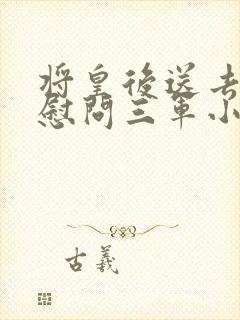 將皇後送去
慰問三軍小
古義